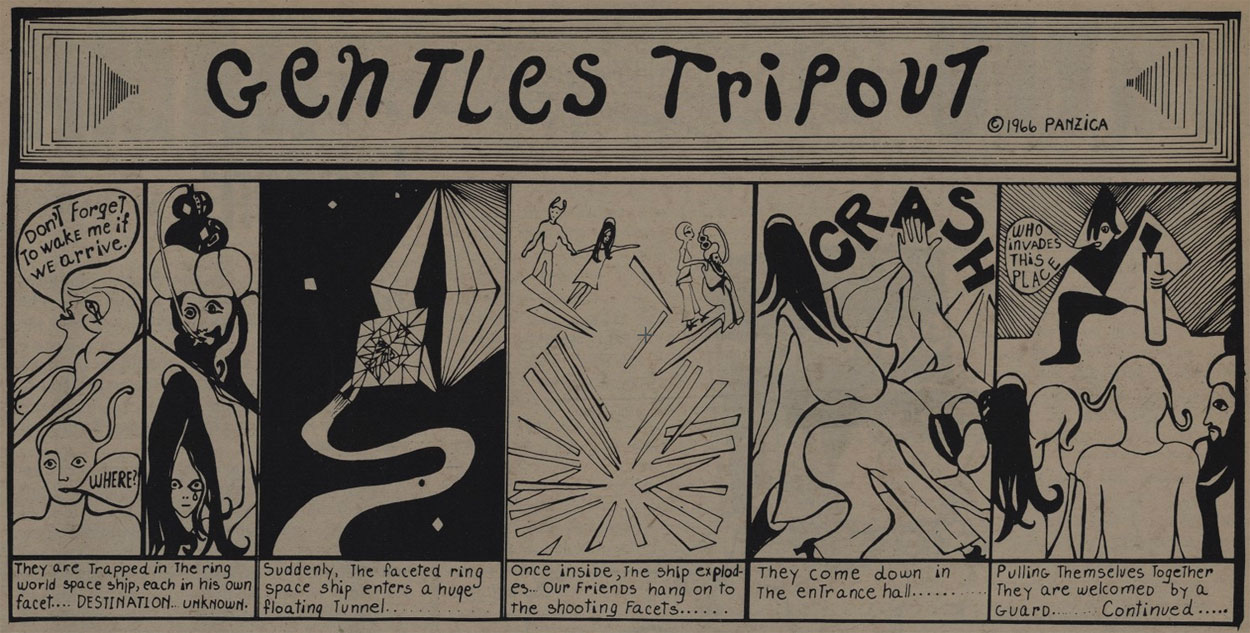 Gentles Tripout
©1966 PANZICA
Don't Forget
To wake me if
we arrive.
WHERE?
CRASH
WHO
invades
THiS
PLACE
They are Trapped in The ring
world space ship, each in his own
facet.... DESTINATION.. UNKNOWN.
Suddenly, The faceted ring
space ship enters a huge
floating Tunnel..........
Once inside, The ship explod-
es... Our Friends hang on to
the shooting Facets......
They come down in
The entrance hall.........
Pulling Themselves Together
They are welcomed by a
Guard...... Continued.....